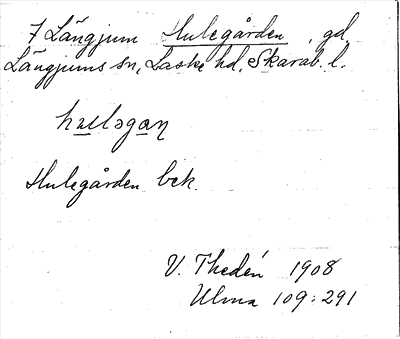 7 Längjum Hulegården, gd,
Längjums sn, Laske hd, Skarab. l.
hu̲ləga̲ṉ
Hulegården bek.
V. Thedén 1908
Ulma 109:291